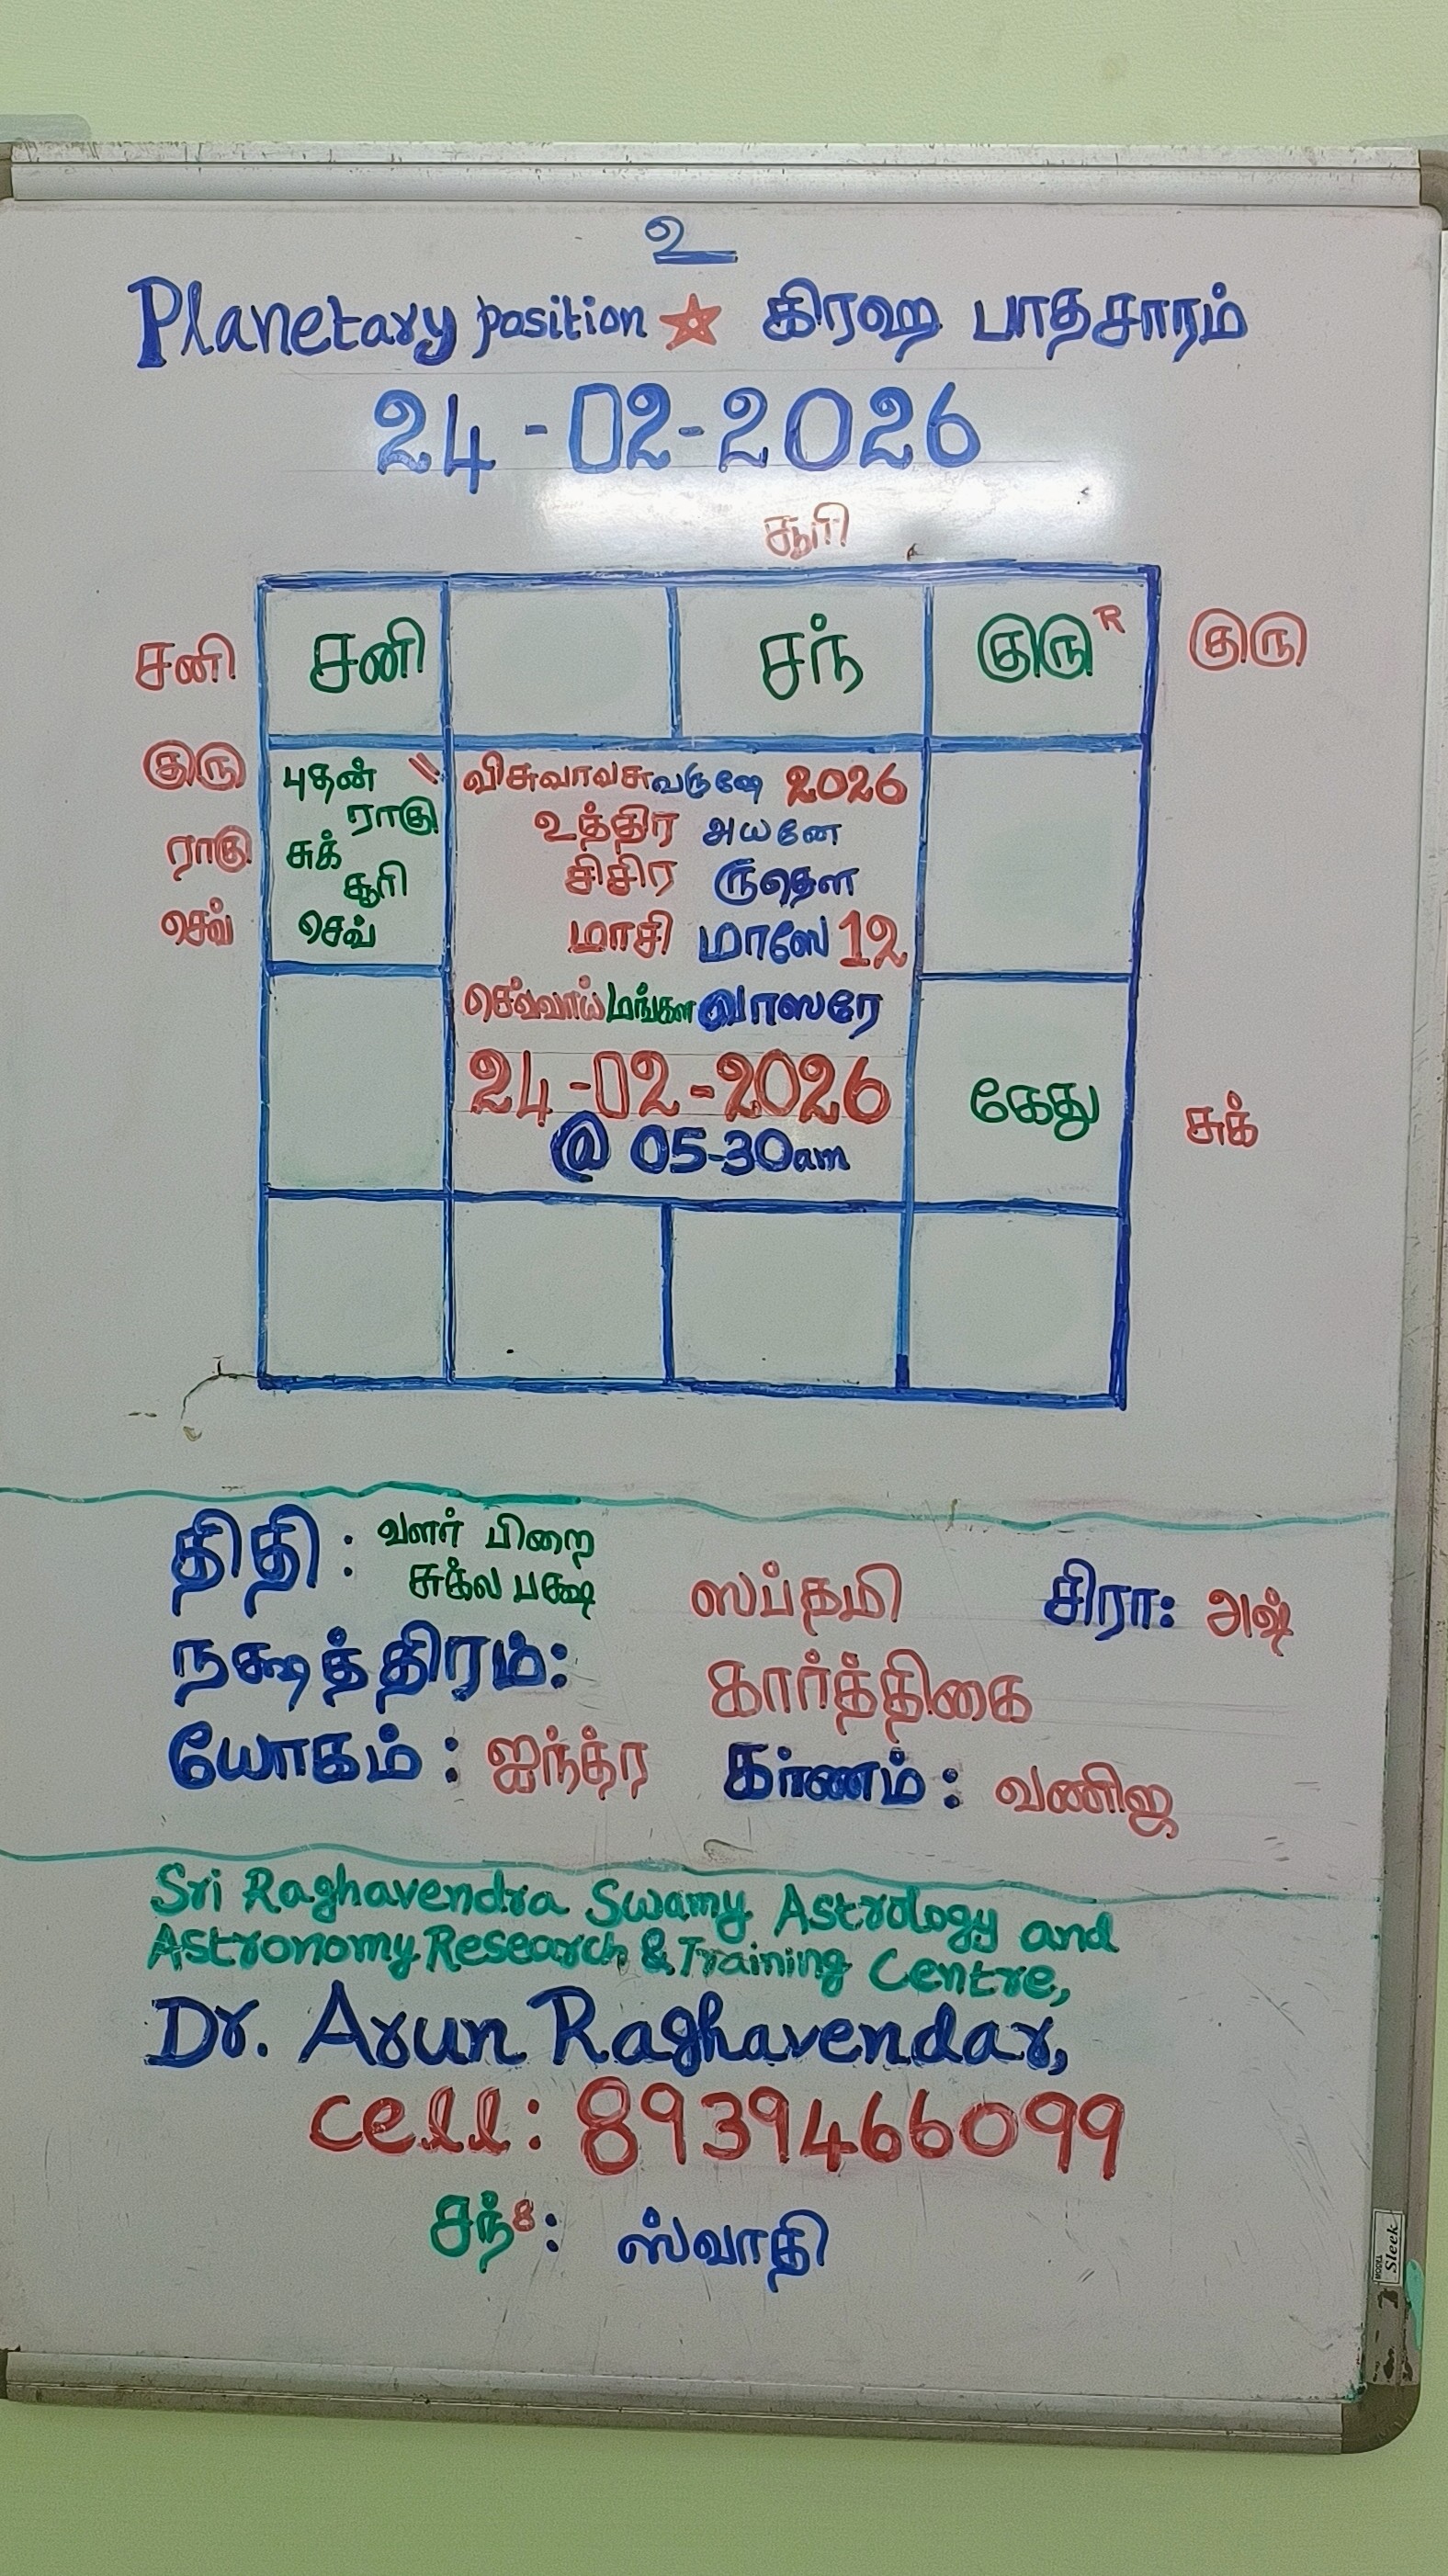 உ
Planetary position ★ கிரஹ பாதசாரம்
24-02-2026
சூரி
சனி சனி சந் குரு R குரு
குரு புதன் " விசுவாவசு வருஷே 2026
ராகு
உத்திர அயனே
ராகு சுக் சிசிர ருதௌ
சூரி
செவ் செவ் மாசி மாஸே 12
செவ்வாய் மங்கள வாஸரே
24-02-2026 கேது சுக்
@ 05-30am
திதி : வளர் பிறை
சுக்ல பக்ஷ ஸப்தமி சிரா: அஷ்
நக்ஷத்திரம்: கார்த்திகை
யோகம் : ஐந்த்ர கர்ணம் : வணிஜ
Sri Raghavendra Swamy Astrology and
Astronomy Research & Training Centre,
Dr. Arun Raghavendar,
cell: 8939466099
சந்8: ஸ்வாதி
Sleek